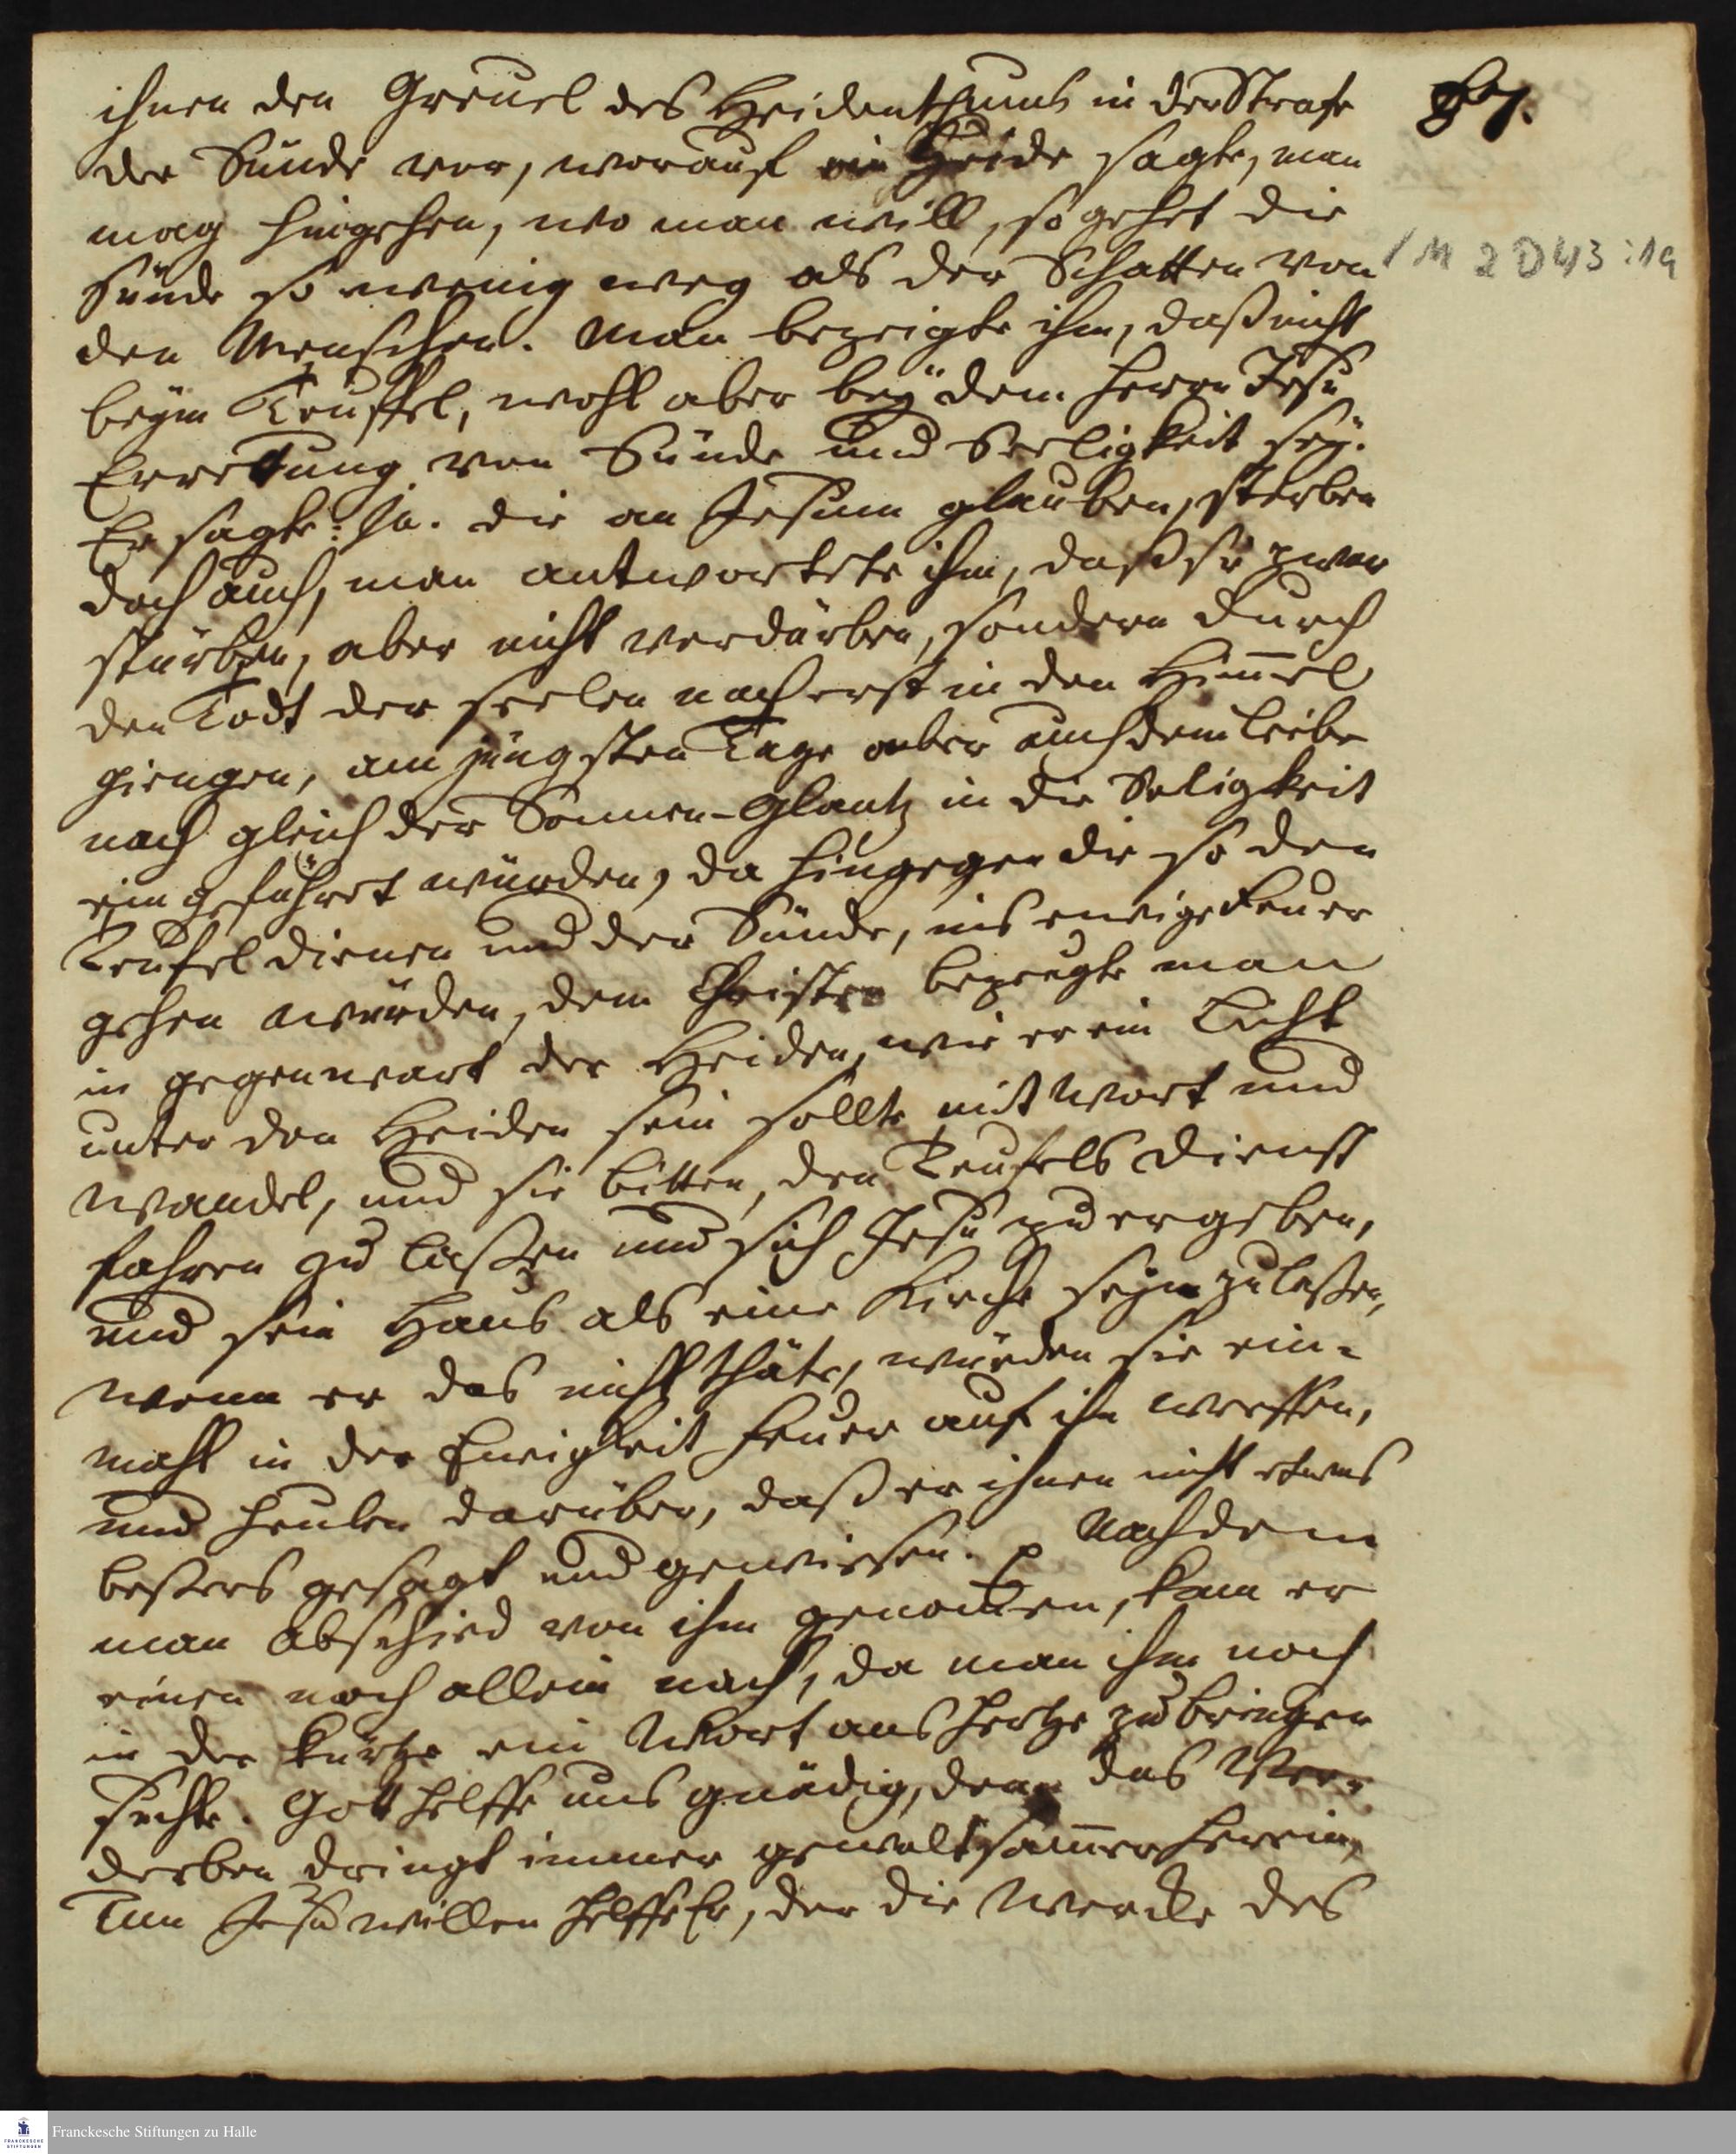 ihnen den Greuel des Heidenthums in der Strafe
der Sünde vor, worauf ein Heide sagte, man
mag hingehen, wo man will, so gehet die
Sünde so wenig weg als der Schatten von
den Menschen. Man bezeigte ihm, daß nicht
beÿm Teuffel, wohl aber beÿ dem Herrn Jesu
Errettung von Sünde und Seeligkeit seÿ.
Er sagte: Ja. die an Jesum glauben, sterben
doch auch, man antwortete ihm, daß sie zwar
stürben, aber nicht verdürben, sondern durch
den Todt der seelen nach erst in den Him̅el
giengen, am jüngsten Tage aber auch dem Leibe
nach gleich der Sonnen-Glantz in die Seligkeit
eingeführt würden, da hingegen die so dem
Teufel dienen und der Sünde, ins ewige Feuer
gehen würden, dem Christen bezeugte man
in gegenwart der Heiden, wie er ein Licht
unter den Heiden sein sollte mit Wort und
wandel, und sie bitten, den Teufels dienst
fahren zu laßen und sich Jesu zu ergeben,
und sein Haus als eine Kirche seyn zu laßen,
wenn er das nicht thäte, würden sie ein-
mahl in der Ewigkeit Feuer auf ihn werffen,
und heulen darüber, daß er ihnen nicht etwas
beßers gesagt und gewiesen. Nachdem
man Abschied von ihm genom̅en, kam er
einen noch allein nach, da man ihm noch
in der kürtze ein Wort ans Hertze zu bringen
suchte. Gott helffe uns gnädig, denn das Ver-
derben dringt immer gewaltsam̅er herein,
Um Jesu willen helffe Er, der die Wercke des
87.
/M 2 D 43 : 19
Franckesche Stiftungen zu Halle
FRANCKESCHE
STIFTUNGEN